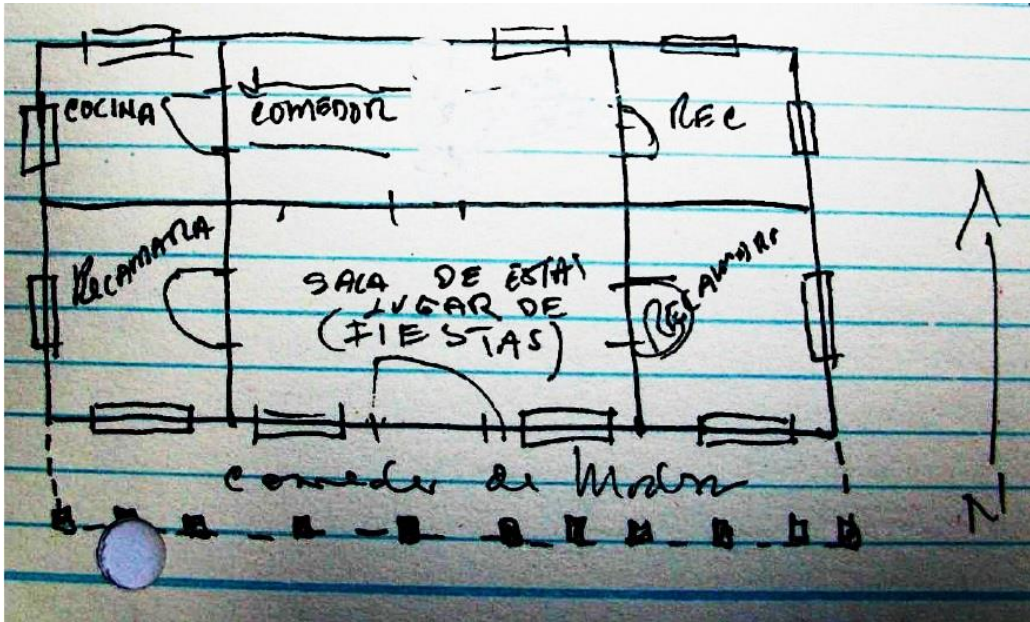 COCINA
COMEDOR
REC
RECAMARA
SALA DE ESTAR
LUGAR DE
(FIESTAS)
RECAMARA
de
N